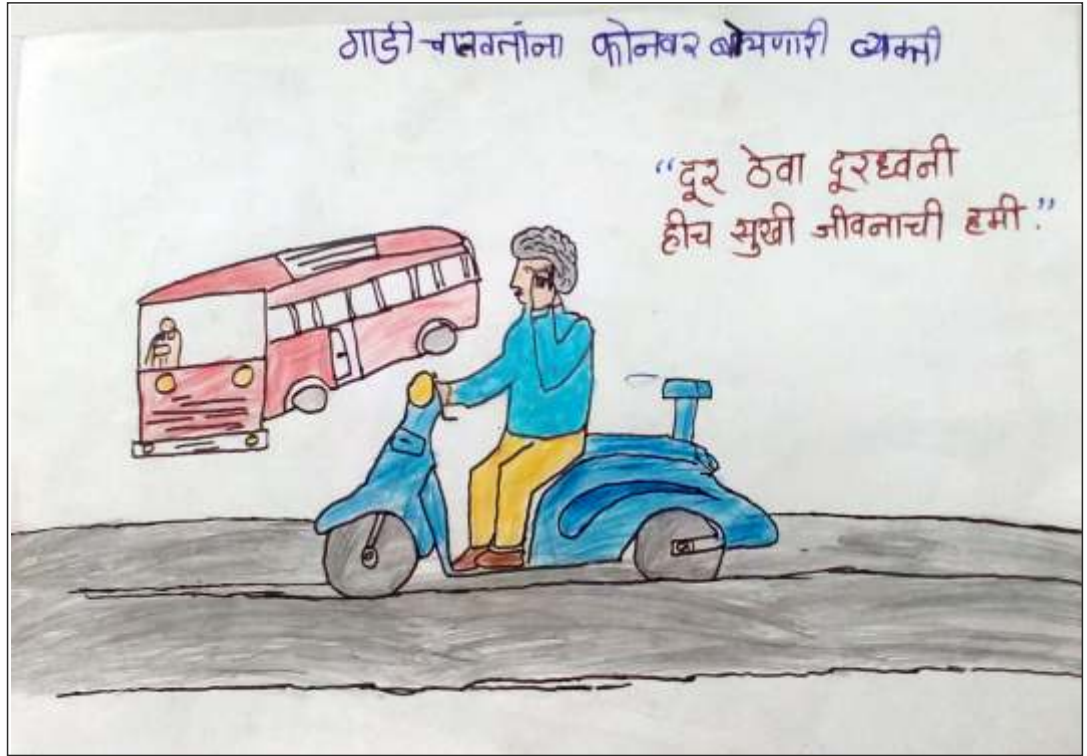 गाडी चालवतांना फोनवर बोलणारी व्यक्ती
"दूर ठेवा दूरध्वनी
हीच सुखी जीवनाची हमी."